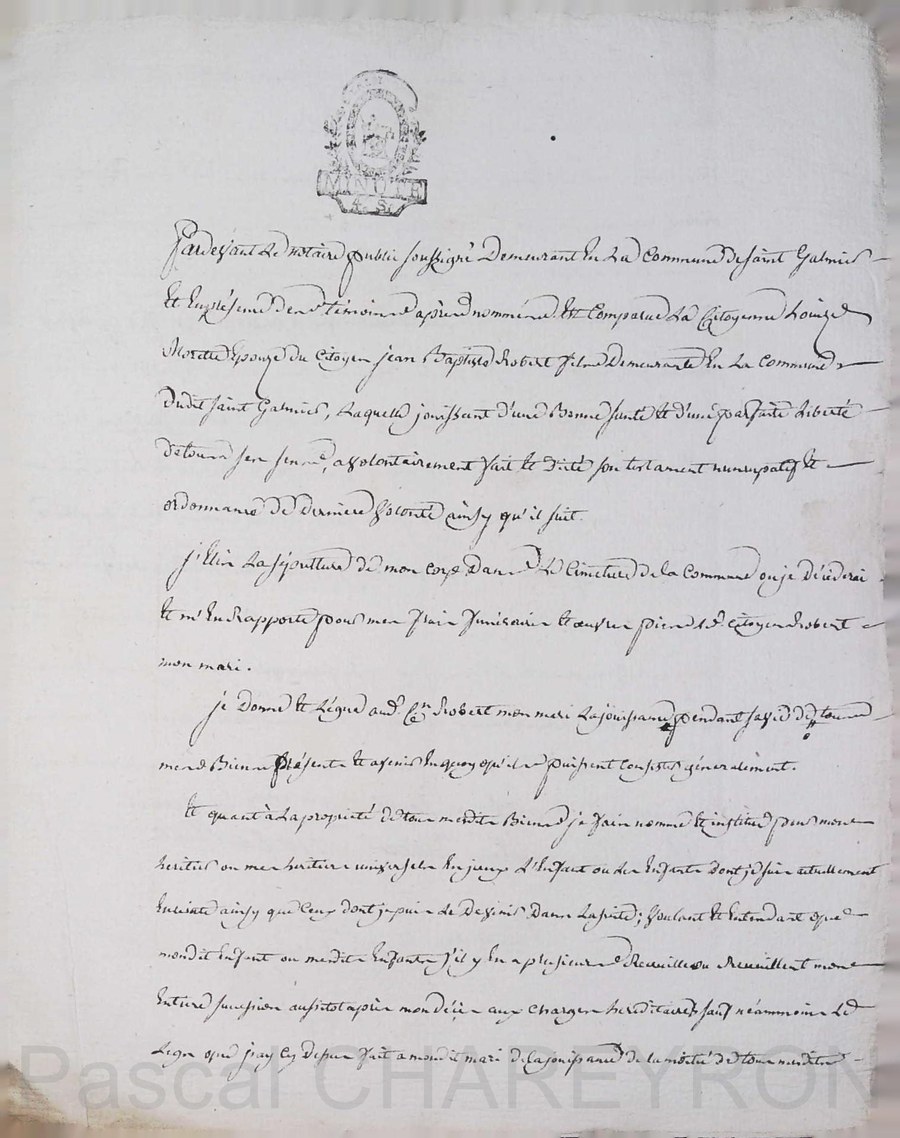 MINUTE
4. S.
Pardevant Le notaire public soussigné Demeurant En La Commune de saint Galmier
Et En présence des témoins après nommés Est Comparue La Citoyenne Louize
Epouze du Citoyen jean Baptiste Robert fils Demeurante En La Commune
Dudit saint Galmier, Laquelle jouissant d'une Bonne santé Et d'une parfaite Liberté
De tous ses sens, a volontairement fait Et dicté son testament nuncupatif Et
ordonnance De Derniere Volonté ainsy qu'il suit.
j'Elis La sépulture de mon corps Dans Le Cimetiere de la Commune ou je décéderai
Et m'En Rapporte pour mes frais funéraires Et œuvres pies au d. Citoyen Robert
mon mari.
je Donne Et Légue aud. Cen Robert mon mari La jouissance pendant sa vie De tous
mes Biens Présents Et avenir En quoy qu'ils puissent Consister généralement.
Et quant à La propriété De tous mesdits Biens je fais nomme Et institue pour mon
heritier ou mes heritiers universels En jceux L'Enfant ou Les Enfants Dont je suis actuellement
Enceinte ainsy que Ceux dont je puis Le Devenir Dans La suite; Voulant Et Entendant que
mondit Enfant ou mesdits Enfants s'il y En a plusieurs Recueille ou Recueillent mon
Entiere succession aussitot apres mon décès aux charges héréditaires sauf néammoins Le
Legs que j'ay Cy Dessus fait a mondit mari de la jouissance de la moitié De tous mesdits
Pascal CHAREYRON